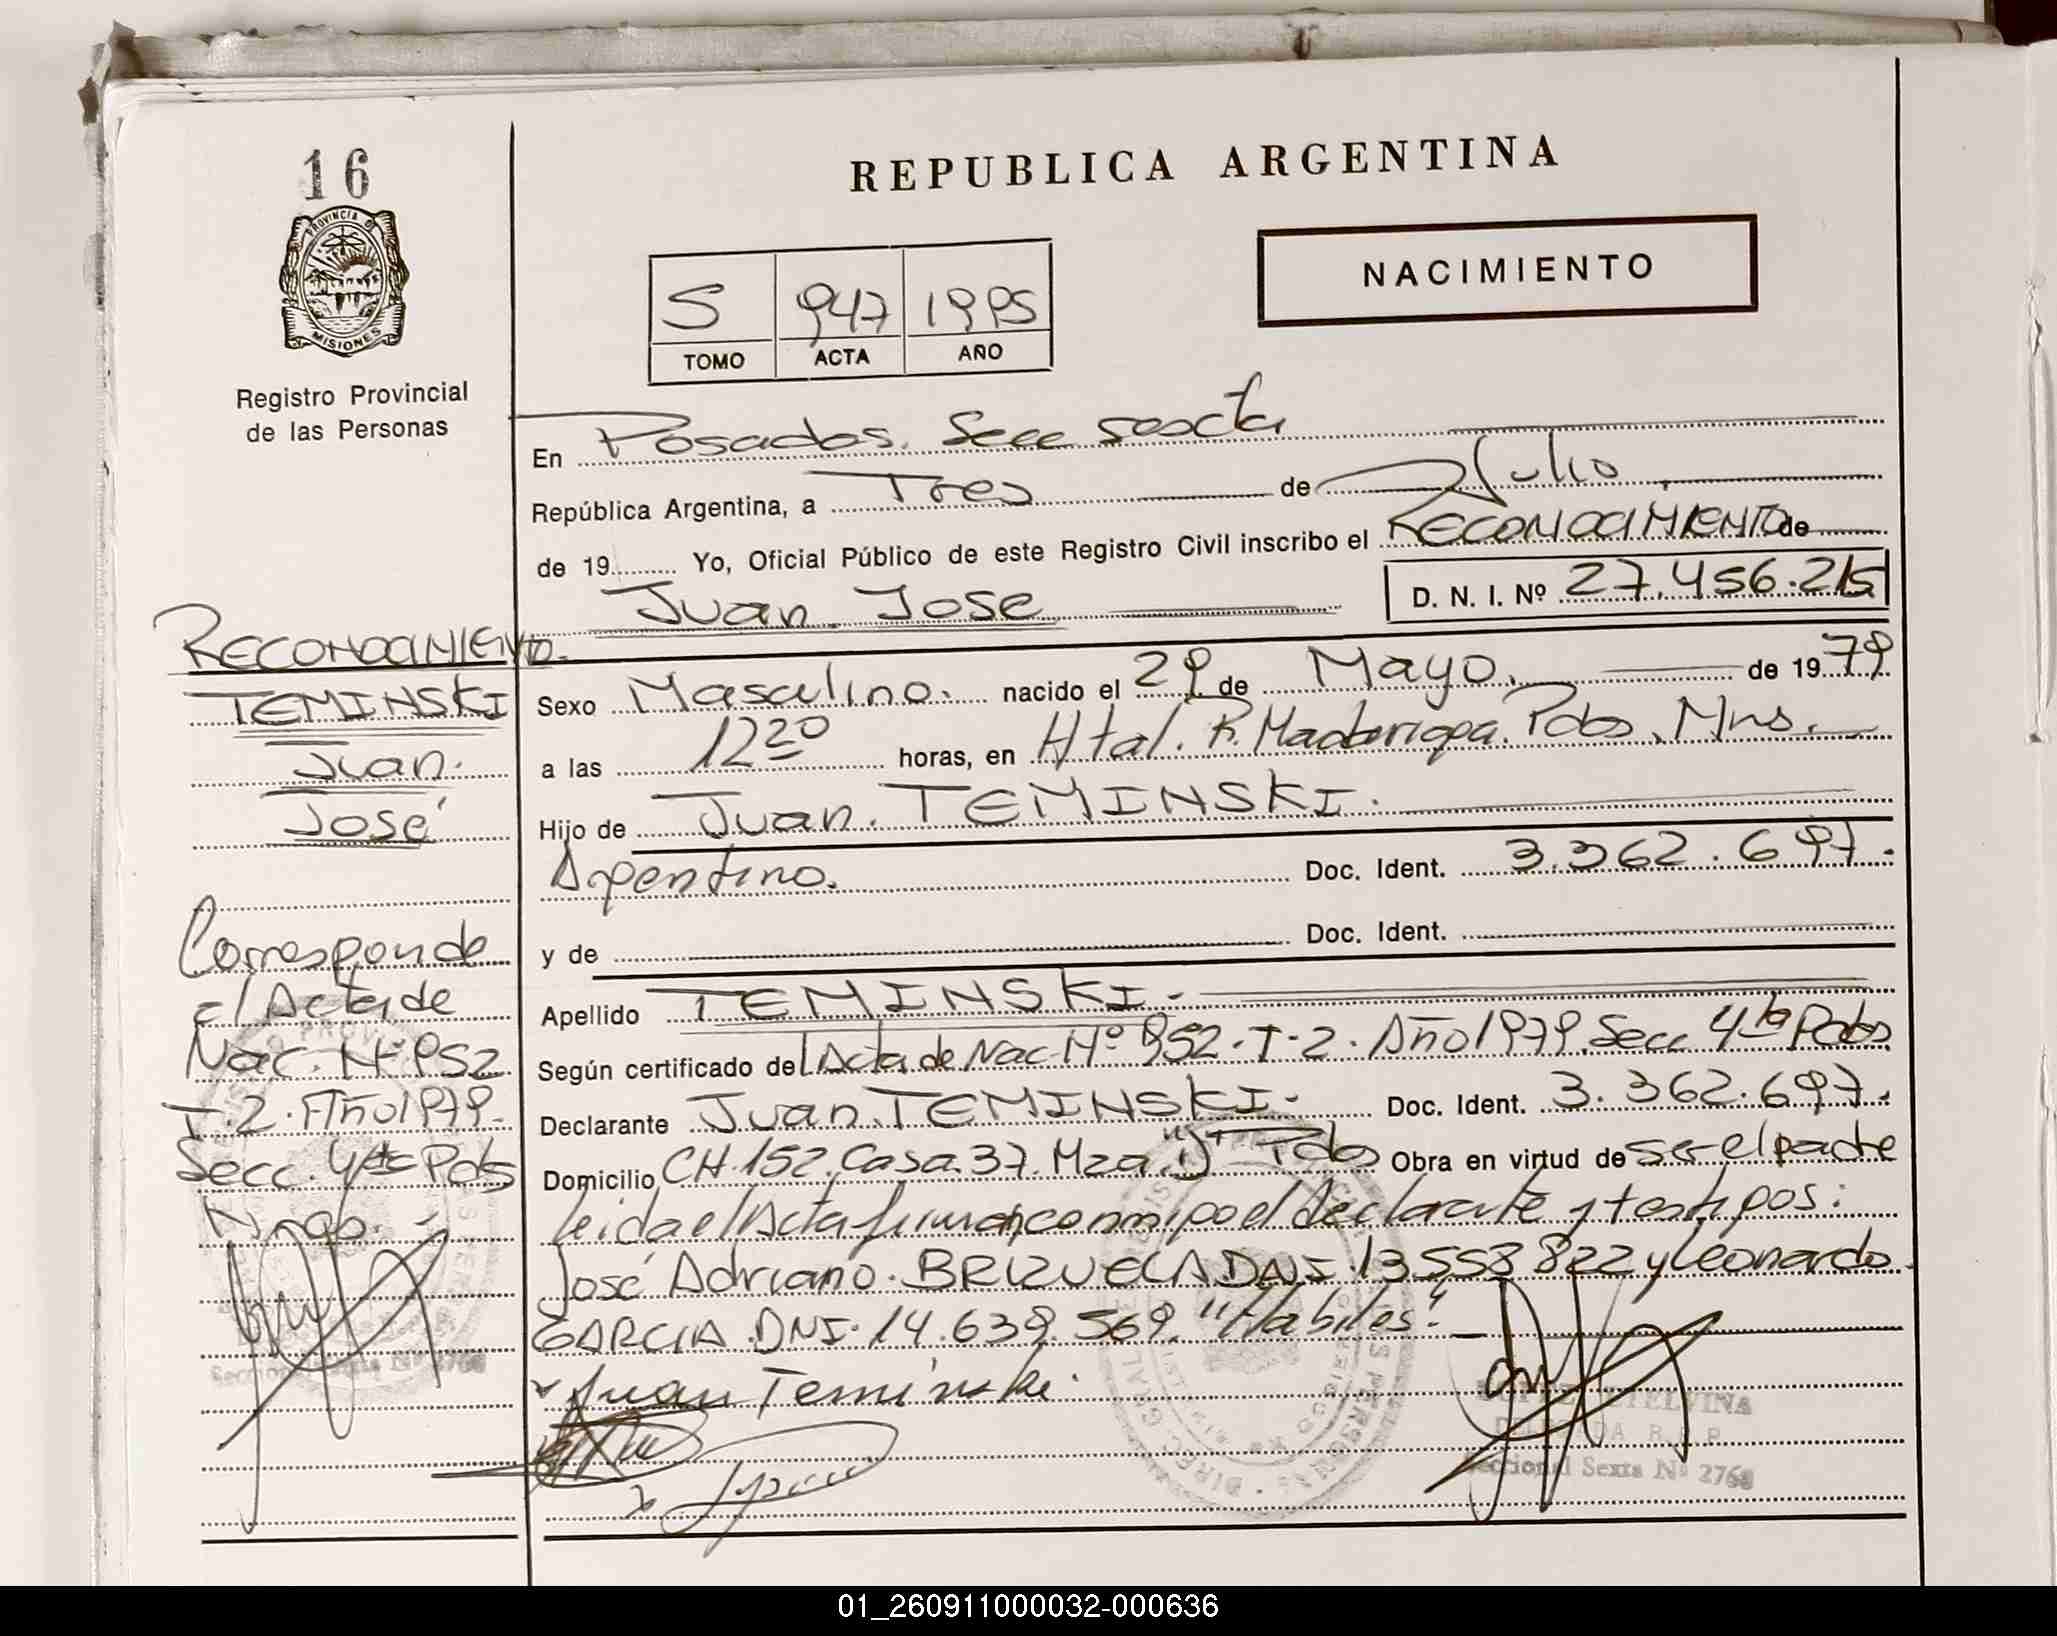 16
PROVINCIA D
MISIONES
Registro Provincial
de las Personas
REPUBLICA ARGENTINA
NACIMIENTO
5 947 1995
TOMO ACTA AÑO
En Posadas. Secc sexta
República Argentina, a Tres de Julio
de 19 Yo, Oficial Público de este Registro Civil inscribo el RECONOCIMIENTO de
Juan Jose D. N. I. Nº 27.456.215
Sexo Masculino. nacido el 29 de Mayo. de 1979
a las 12 20 horas, en Htal. R. Madariaga. Pdas. Mns.
Hijo de Juan. TEMINSKI.
Argentino. Doc. Ident. 3.362.697.
y de Doc. Ident.
Apellido TEMINSKI.-
Según certificado del Acta de Nac. Nº 952. T-2. Año 1979. Secc 4ta Pdas
Declarante Juan. TEMINSKI.- Doc. Ident. 3.362.697.
Domicilio CH. 152. Casa. 37. Mza Pdas Obra en virtud de ser el padre
leida el Acta firman conmigo el declarante y testigos:
José Adriano. BRIZUELA DNI. 13.553.822 y Leonardo
GARCIA. DNI. 14.639.569. "Habiles".
Juan Teminski.
RECONOCIMIENTO.
TEMINSKI
Juan.
José
Corresponde
al Acta de
Nac. Nº 952
T-2. Año 1979.
Secc. 4ta Pdas
LOPEZ ETELVINA
DELEGADA R.P.P.
Seccional Sexta Nº 2768
01_260911000032-000636